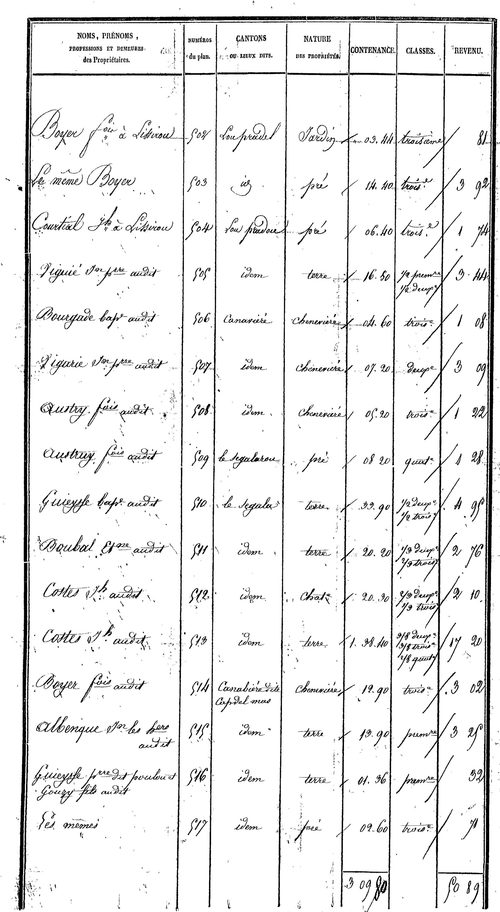 NOMS, PRÉNOMS, PROFESSIONS ET DEMEURES des Propriétaires. NUMÉROS du plan. CANTONS OU LIEUX DITS. NATURE DES PROPRIÉTÉS. CONTENANCE. CLASSES. REVENU.
Boyer fois à Lissirou 502 Lou pradel Jardin 03.44 troisième 81
Le même Boyer 503 id pré 14.40 trois.e 3 92
Courtial Jh à Lissirou 504 pré 06.40 trois.e 1 74
Viguié Jn prre audit 505 idem terre 16.50 1/2 premre 3 44
1/2 deuxe
Bourgade bapt audit 506 Canavière Chenevière 04.60 trois.e 1 08
Vigurie Jn prre audit 507 idem Chenevière 07.20 deuxe 3 09
Austry fois audit 508 idem Chenevière 05.20 trois.e 1 22
Austruy fois audit 509 le segalarou pré 08 20 quat.e 1 28
Guieysse bapt audit 510 le segala terre 33.90 1/2 deuxe 4 95
1/2 trois.e
Boubal Etne audit 511 idem terre 20.20 1/3 deuxe 2 76
2/3 trois.e
Costes Jh audit 512 idem Chat.e 20.30 2/3 deuxe 2 10
1/3 trois.e
Costes Jh audit 513 idem terre 1.38.40 3/8 deuxe 17 20
3/8 trois.e
2/8 quat.e
Boyer fois audit 514 Canabière dite Chenevière 19.90 trois.e 3 02
Cap del mas
Albenque Jn les hers 515 idem terre 13.90 premre 3 25
audit
Guieysse prre dit poulou et 516 idem terre 01.36 premre 32
Gouzy fils audit
Les mêmes 517 idem pré 09.60 trois.e 71
3 09 80 50 89